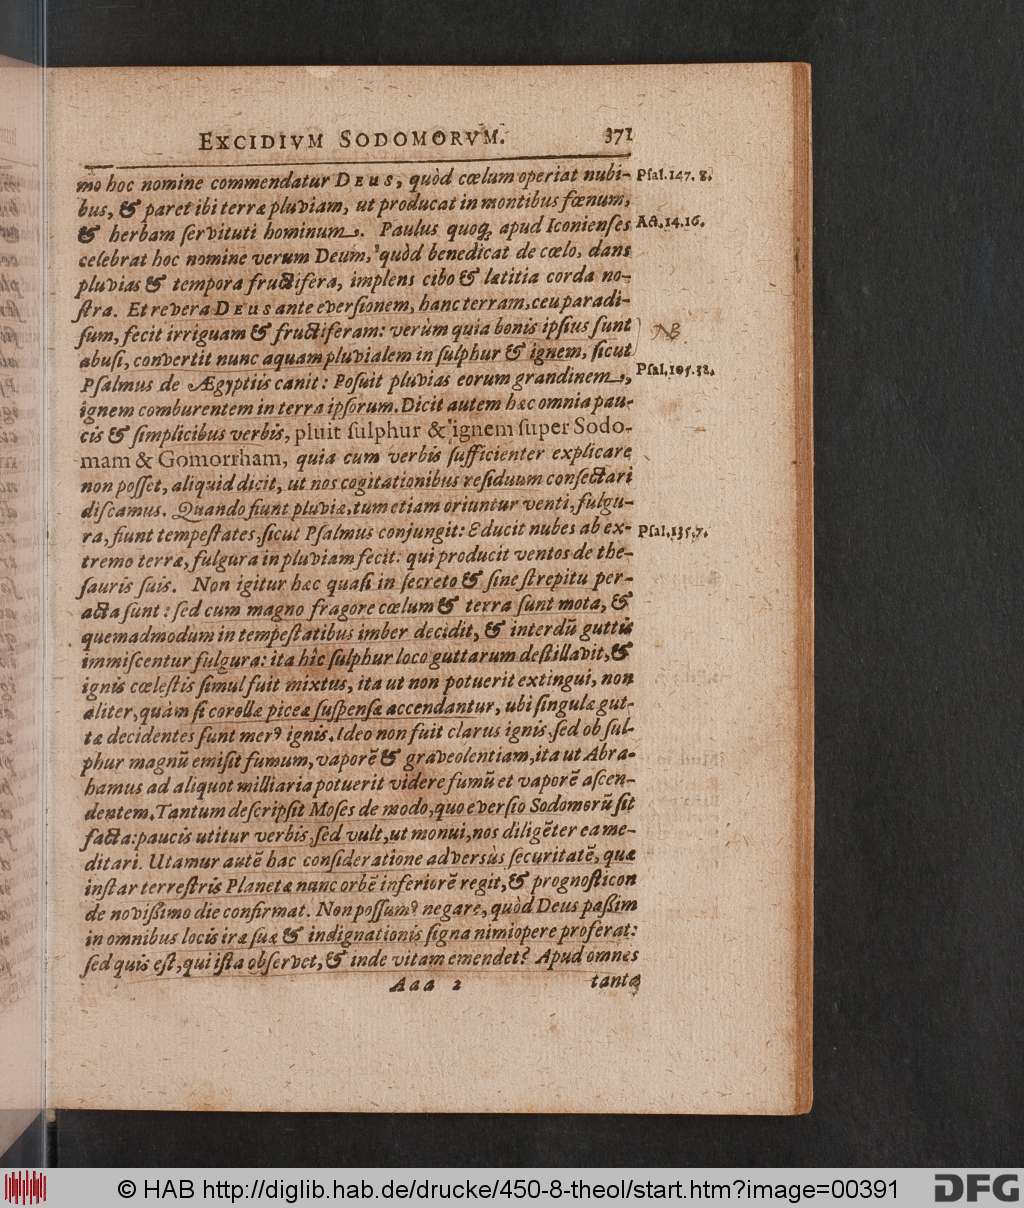 EXCIDIVM SODOMORVM. 371
mo hoc nomine commendatur DEUS, quòd cœlum operiat nubi- Psal. 147. 8.
bus, & paret ibi terræ pluviam, ut producat in montibus fœnum,
& herbam servituti hominum. Paulus quoq; apud Iconienses Act. 14. 16.
celebrat hoc nomine verum Deum, quòd benedicat de cœlo, dans
pluvias & tempora fructifera, implens cibo & lætitia corda no-
stra. Et revera DEUS ante eversionem, hanc terram, ceu paradi-
sum, fecit irriguam & fructiferam: verùm quia bonis ipsius sunt NB
abusi, convertit nunc aquam pluvialem in sulphur & ignem, sicut
Psalmus de Ægyptiis canit: Posuit pluvias eorum grandinem, Psal. 105. 32.
ignem comburentem in terra ipsorum. Dicit autem hæc omnia pau-
cis & simplicibus verbis, pluit sulphur & ignem super Sodo-
mam & Gomorrham, quia cum verbis sufficienter explicare
non posset, aliquid dicit, ut nos cogitationibus residuum consectari
discamus. Quando fiunt pluviæ, tum etiam oriuntur venti, fulgu-
ra, fiunt tempestates, sicut Psalmus conjungit: Educit nubes ab ex- Psal. 135. 7.
tremo terræ, fulgura in pluviam fecit: qui producit ventos de the-
sauris suis. Non igitur hæc quasi in secreto & sine strepitu per-
acta sunt: sed cum magno fragore cœlum & terra sunt mota, &
quemadmodum in tempestatibus imber decidit, & interdũ guttis
immiscentur fulgura: ita hîc sulphur loco guttarum destillavit, &
ignis cœlestis simul fuit mixtus, ita ut non potuerit extingui, non
aliter, quàm si corollæ piceæ suspensæ accendantur, ubi singulæ gut-
tæ decidentes sunt merꝰ ignis. Ideo non fuit clarus ignis, sed ob sul-
phur magnũ emisit fumum, vaporẽ & graveolentiam, ita ut Abra-
hamus ad aliquot milliaria potuerit videre fumũ et vaporẽ ascen-
dentem. Tantum descripsit Moses de modo, quo eversio Sodomorũ sit
facta: paucis utitur verbis, sed vult, ut monui, nos diligẽter ea me-
ditari. Utamur autẽ hac consideratione adversùs securitatẽ, quæ
instar terrestris Planetæ nunc orbẽ inferiorẽ regit, & prognosticon
de novissimo die confirmat. Non possumꝰ negare, quòd Deus passim
in omnibus locis iræ suæ & indignationis signa nimiopere proferat:
sed quis est, qui ista observet, & inde vitam emendet? Apud omnes
Aaa 2 tanta
© HAB http://diglib.hab.de/drucke/450-8-theol/start.htm?image=00391
DFG